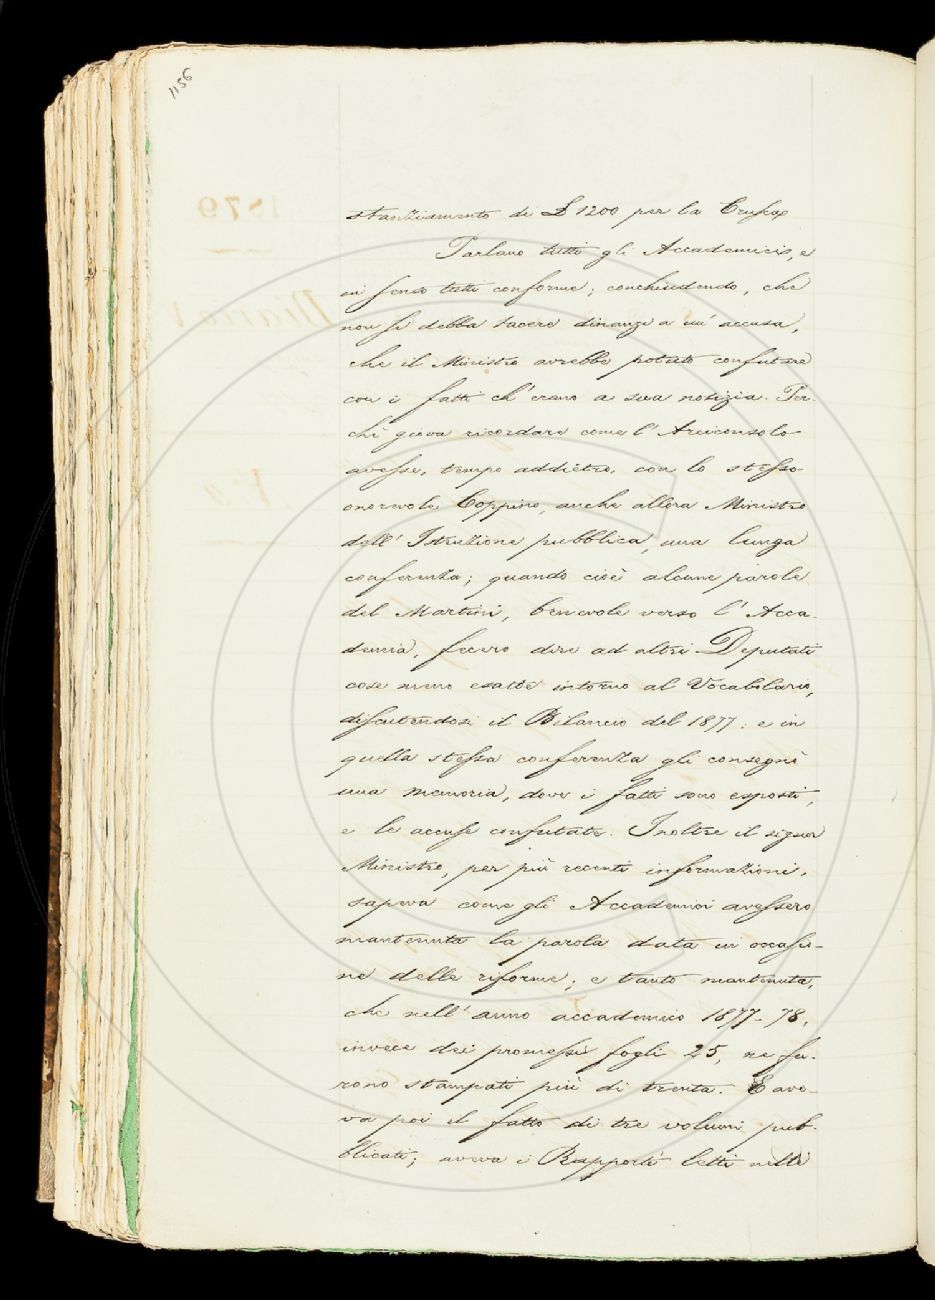 1156
stanziamento di £ 1200 per la Crusca
Parlano tutti gli Accademici, e
in senso tutti conforme; conchiudendo, che
non si debba tacere dinanzi a un' accusa,
che il Ministro avrebbe potuto confutare
con i fatti ch' erano a sua notizia. Per-
chè giova ricordare come l' Arciconsolo
avesse, tempo addietro, con lo stesso
onorevole Coppino, anche allora Ministro
dell' Istruzione pubblica, una lunga
conferenza; quando cioè alcune parole
del Martini, benevole verso l' Acca-
demia, fecero dire ad altri Deputati
cose meno esatte intorno al Vocabolario,
discutendosi il Bilancio del 1877: e in
quella stessa conferenza gli consegnò
una memoria, dove i fatti sono esposti,
e le accuse confutate. Inoltre il signor
Ministro, per più recenti informazioni,
sapeva come gli Accademici avessero
mantenuta la parola data in occasio-
ne delle riforme; e tanto mantenuta,
che nell' anno accademico 1877-78,
invece dei promessi fogli 25, ne fu-
rono stampati più di trenta. E ave-
va poi il fatto di tre volumi pub-
blicati; aveva i Rapporti letti nelle